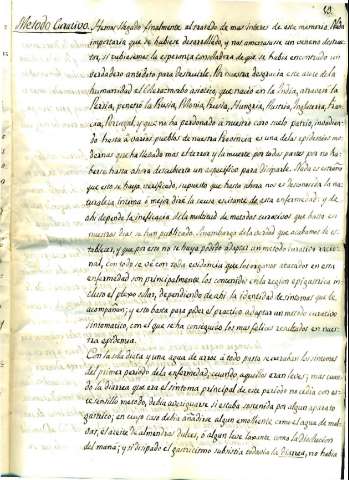 82.
Metodo Curativo. Hemos llegado finalmente al tratado de mas interes de esta memoria. Nada
importaria que se hubiera desarrollado, y nos amenazase un veneno destruc-
tor, si tubiesemos la esperanza consoladora de que se habia encontrado un
verdadero antidoto para destruirle. Por nuestra desgracia este azote de la
humanidad el Colera morbo asiatico, que nacio en la India, atraveso la
Persia, penetro la Rusia, Polonia, Prusia, Hungria, Austria, Inglaterra, Fran-
cia, Portugal, y que no ha perdonado a nuestro caro suelo patrio, invadien-
do hasta a varios pueblos de nuestra Provincia es una de las epidemias mo-
dernas que ha llevado mas el terror y la muerte por todas partes por no ha-
berse hasta ahora descubierto un especifico para disiparle. Nada es estraño
que esto se haya verificado, supuesto que hasta ahora nos es desconocida la na-
turaleza intima o mejor diré la causa escitante de esta enfermedad: y de
ahi depende la ineficacia de la multitud de metodos curativos que hasta en
nuestros dias se han publicado. Sin embargo de la verdad que acabamos de es-
tablecer, y que por esto no se haya podido adoptar un metodo curativo racio-
nal, con todo se vé con toda evidencia que los organos atacados en esta
enfermedad son principalmente los contenidos en la region epigastrica in-
cluso el plexo solar, dependiendo de ahi la identidad de sintomas que le
acompañan; y esto basta para poder el practico adoptar un metodo curativo
sintomatico, con el que se ha conseguido los mas felices resultados en nues-
tra epidemia.
Con la sola dieta y una agua de arroz á todo pasto se curaban los sintomas
del primer periodo de la enfermedad, cuando aquellos eran leves; mas cuan-
do la diarrea que era el sintoma principal de este periodo no cedia con es-
te sencillo metodo, debia averiguarse si estaba sostenida por algun aparato
gastrico; en cuyo caso debia añadirse algun emoliente como el agua de mal-
vas, el aceite de almendras dulces, o algun leve laxante como la disolucion
del mana; y si disipado el gastricismo subsistia todavia la diarrea, no habia